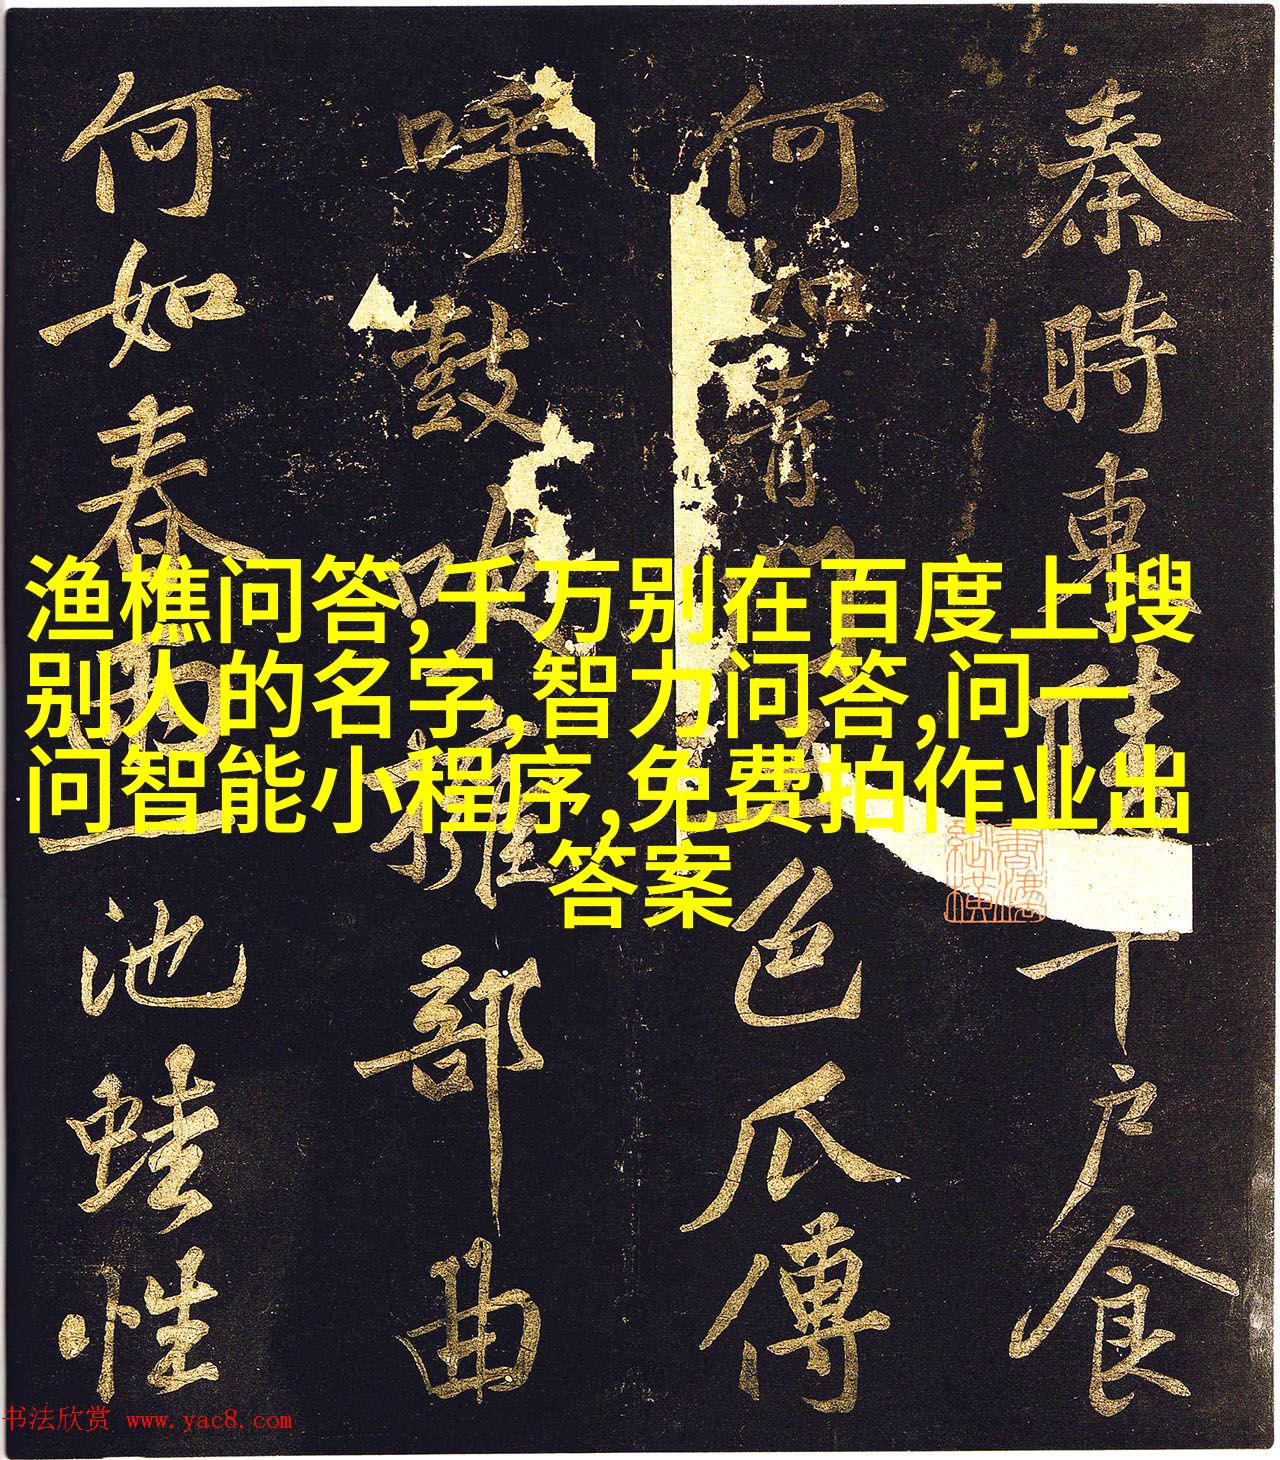 秦時東陵千戶食
何如青門色瓜傳
呼鼓吹擁部曲
何如春雨一池蛙性
渔樵问答,千万别在百度上搜
别人的名字,智力问答,问一
问智能小程序,免费拍作业出
答案
书法欣赏 www.yac8.com